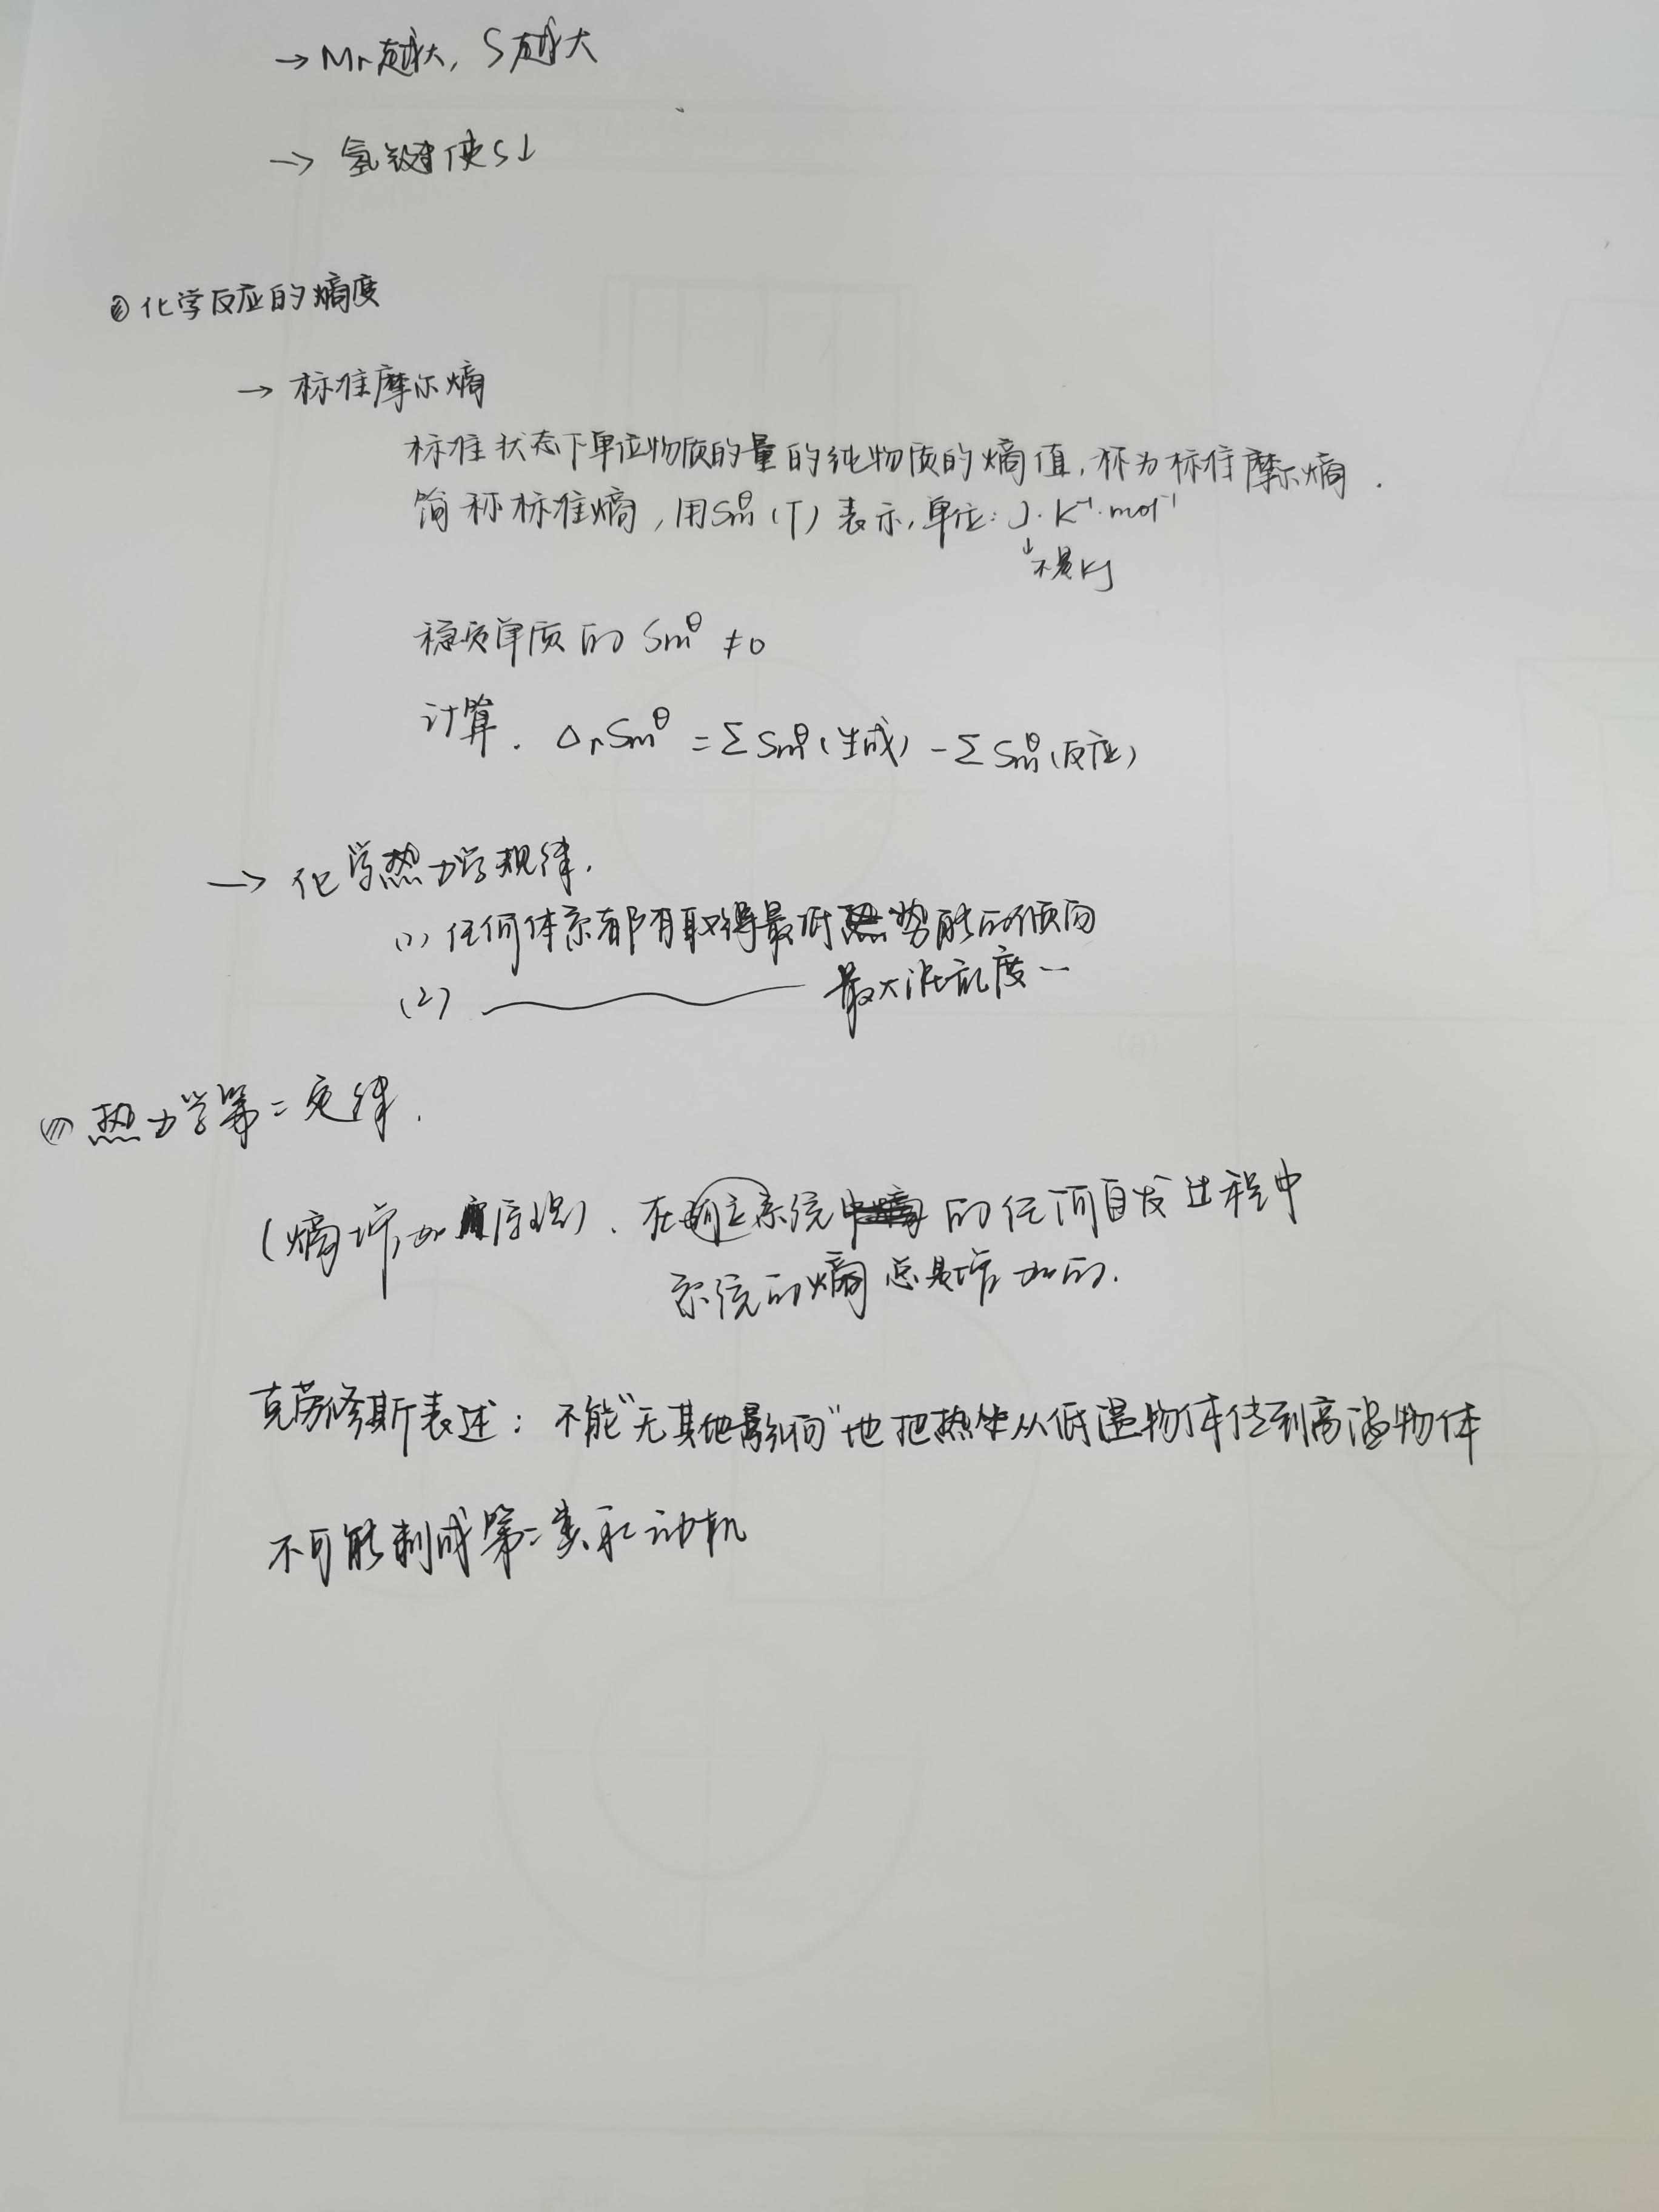 → Mr越大, S越大
→ 氢键使S↓
② 化学反应的熵度
→ 标准摩尔熵
标准状态下单位物质的量的纯物质的熵值,称为标准摩尔熵.
简称标准熵,用Smθ(T)表示,单位:J·K⁻¹·mol⁻¹
↓不是KJ
稳定单质的 Smθ ≠0
计算. ΔrSmθ = ΣSmθ(生成) - ΣSmθ(反应)
→ 化学热力学规律.
(1) 任何体系都有取得最低势能的倾向
(2) 最大混乱度 --
热力学第二定律.
(熵增加原理). 在孤立系统中的任何自发过程中
系统的熵总是增加的.
克劳修斯表述: 不能"无其他影响"地把热从低温物体传到高温物体
不可能制成第二类永动机